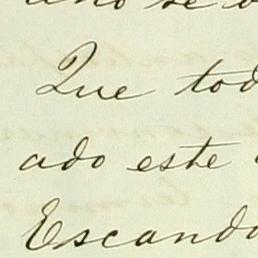 Que tod
ado este
Escando